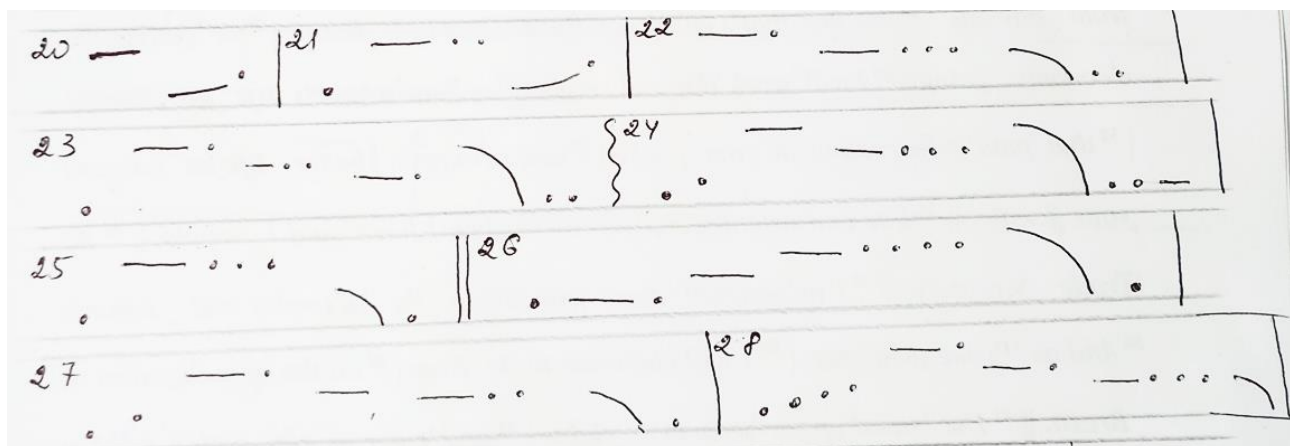 20 21 22
23 24
25 26
27 28